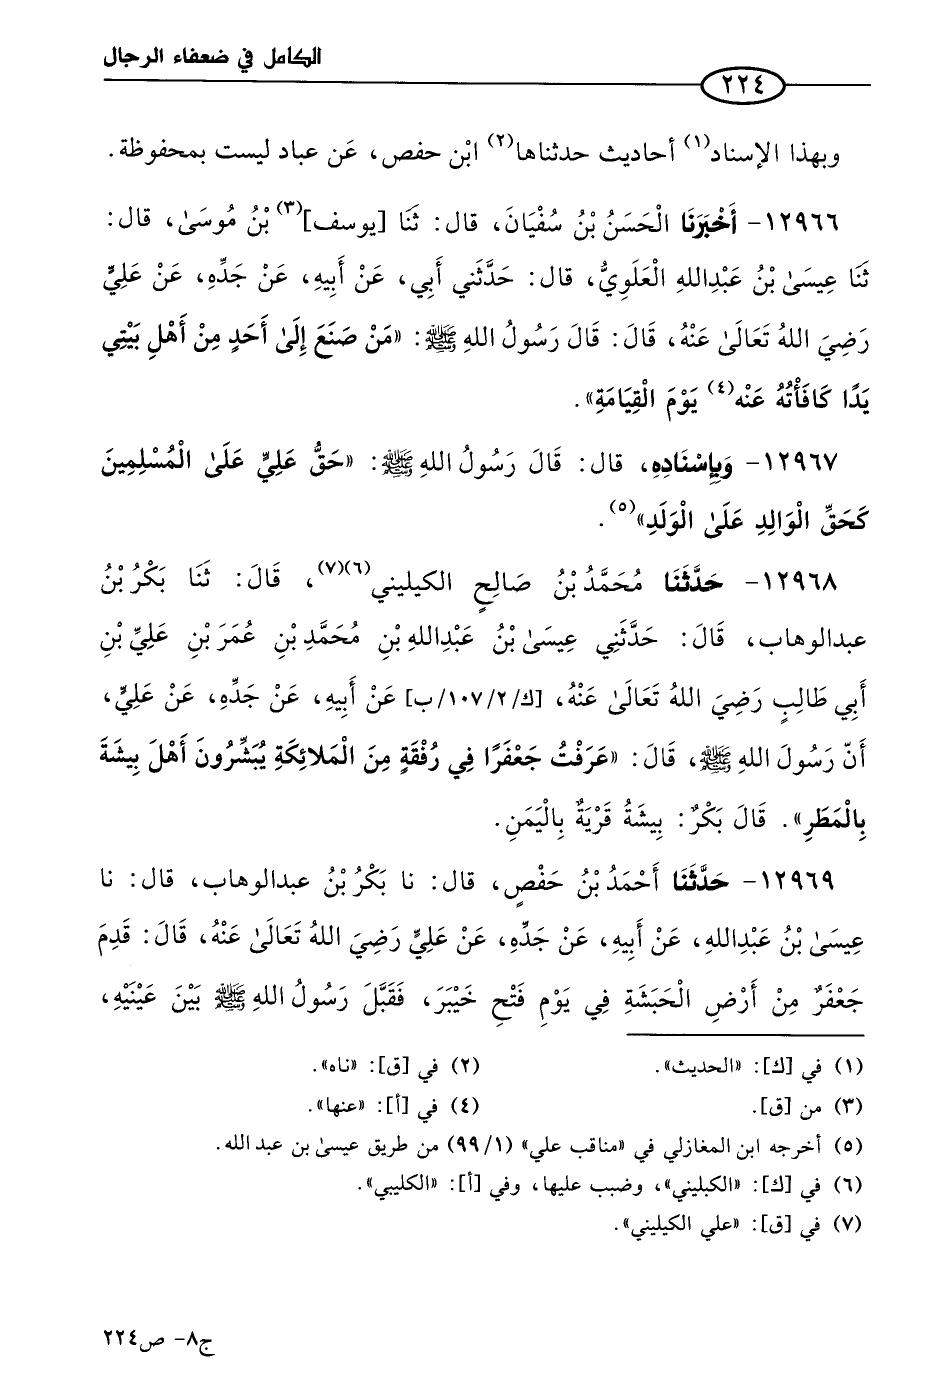 الكامل في ضعفاء الرجال
٢٢٤
وبهذا الإسناد(١) أحاديث حدثناها(٢) ابْن حفص، عَن عباد ليست بمحفوظة.
١٢٩٦٦- أَخْبَرَنَا الْحَسَنُ بْنُ سُفْيَانَ، قال: ثَنَا [يوسف](٣) بْنُ مُوسَىٰ، قال:
ثَنَا عِيسَىٰ بْنُ عَبْدِاللهِ الْعَلَوِيُّ، قال: حَدَّثَني أَبي، عَن أَبِيهِ، عَنْ جَدِّهِ، عَنْ عَلِيٍّ
رَضِيَ اللهُ تَعَالَىٰ عَنْهُ، قَالَ: قَالَ رَسُولُ اللهِ ﷺ: «مَنْ صَنَعَ إِلَىٰ أَحَدٍ مِنْ أَهْلِ بَيْتِي
يَدًا كَافَأْتُهُ عَنْه(٤) يَوْمَ الْقِيَامَةِ».
١٢٩٦٧- وَبِإِسْنَادِهِ، قال: قَالَ رَسُولُ اللهِ ﷺ: «حَقُّ عَلِيٍّ عَلَىٰ الْمُسْلِمِينَ
كَحَقِّ الْوَالِدِ عَلَىٰ الْوَلَدِ»(٥).
١٢٩٦٨- حَدَّثَنَا مُحَمَّدُ بْنُ صَالِحٍ الكيليني(٦)(٧)، قَالَ: ثَنَا بَكْرُ بْنُ
عبدالوهاب، قَالَ: حَدَّثَنِي عِيسَىٰ بْنُ عَبْدِاللهِ بْنِ مُحَمَّدِ بْنِ عُمَرَ بْنِ عَلِيِّ بْنِ
أَبِي طَالِبٍ رَضِيَ اللهُ تَعَالَىٰ عَنْهُ، [ك/١٠٧/٢/ب] عَنْ أَبِيهِ، عَنْ جَدِّهِ، عَنْ عَلِيٍّ،
أَنّ رَسُولَ اللهِ ﷺ، قَالَ: «عَرَفْتُ جَعْفَرًا فِي رُفْقَةٍ مِنَ الْمَلائِكَةِ يُبَشِّرُونَ أَهْلَ بِيشَةَ
بِالْمَطَرِ». قَالَ بَكْرُ: بِيشَةُ قَرْيَةٌ بِالْيَمَنِ.
١٢٩٦٩- حَدَّثَنَا أَحْمَدُ بْنُ حَفْصٍ، قال: نا بَكْرُ بْنُ عبدالوهاب، قال: نا
عِيسَىٰ بْنُ عَبْدِاللهِ، عَن أَبِيهِ، عَنْ جَدِّهِ، عَنْ عَلِيٍّ رَضِيَ اللهُ تَعَالَىٰ عَنْهُ، قَالَ: قَدِمَ
جَعْفَرُ مِنْ أَرْضِ الْحَبَشَةِ فِي يَوْمِ فَتْحِ خَيْبَرَ، فَقَبَّلَ رَسُولُ اللهِ ﷺ بَيْنَ عَيْنَيْهِ،
(١) في [ك]: «الحديث». (٢) في [ق]: «ناه».
(٣) من [ق]. (٤) في [أ]: «عنها».
(٥) أخرجه ابن المغازلي في «مناقب علي» (١/ ٩٩) من طريق عيسىٰ بن عبد الله.
(٦) في [ك]: «الكبليني»، وضبب عليها، وفي [أ]: «الكليبي».
(٧) في [ق]: «علي الكيليني».
ج٨- ص٢٢٤